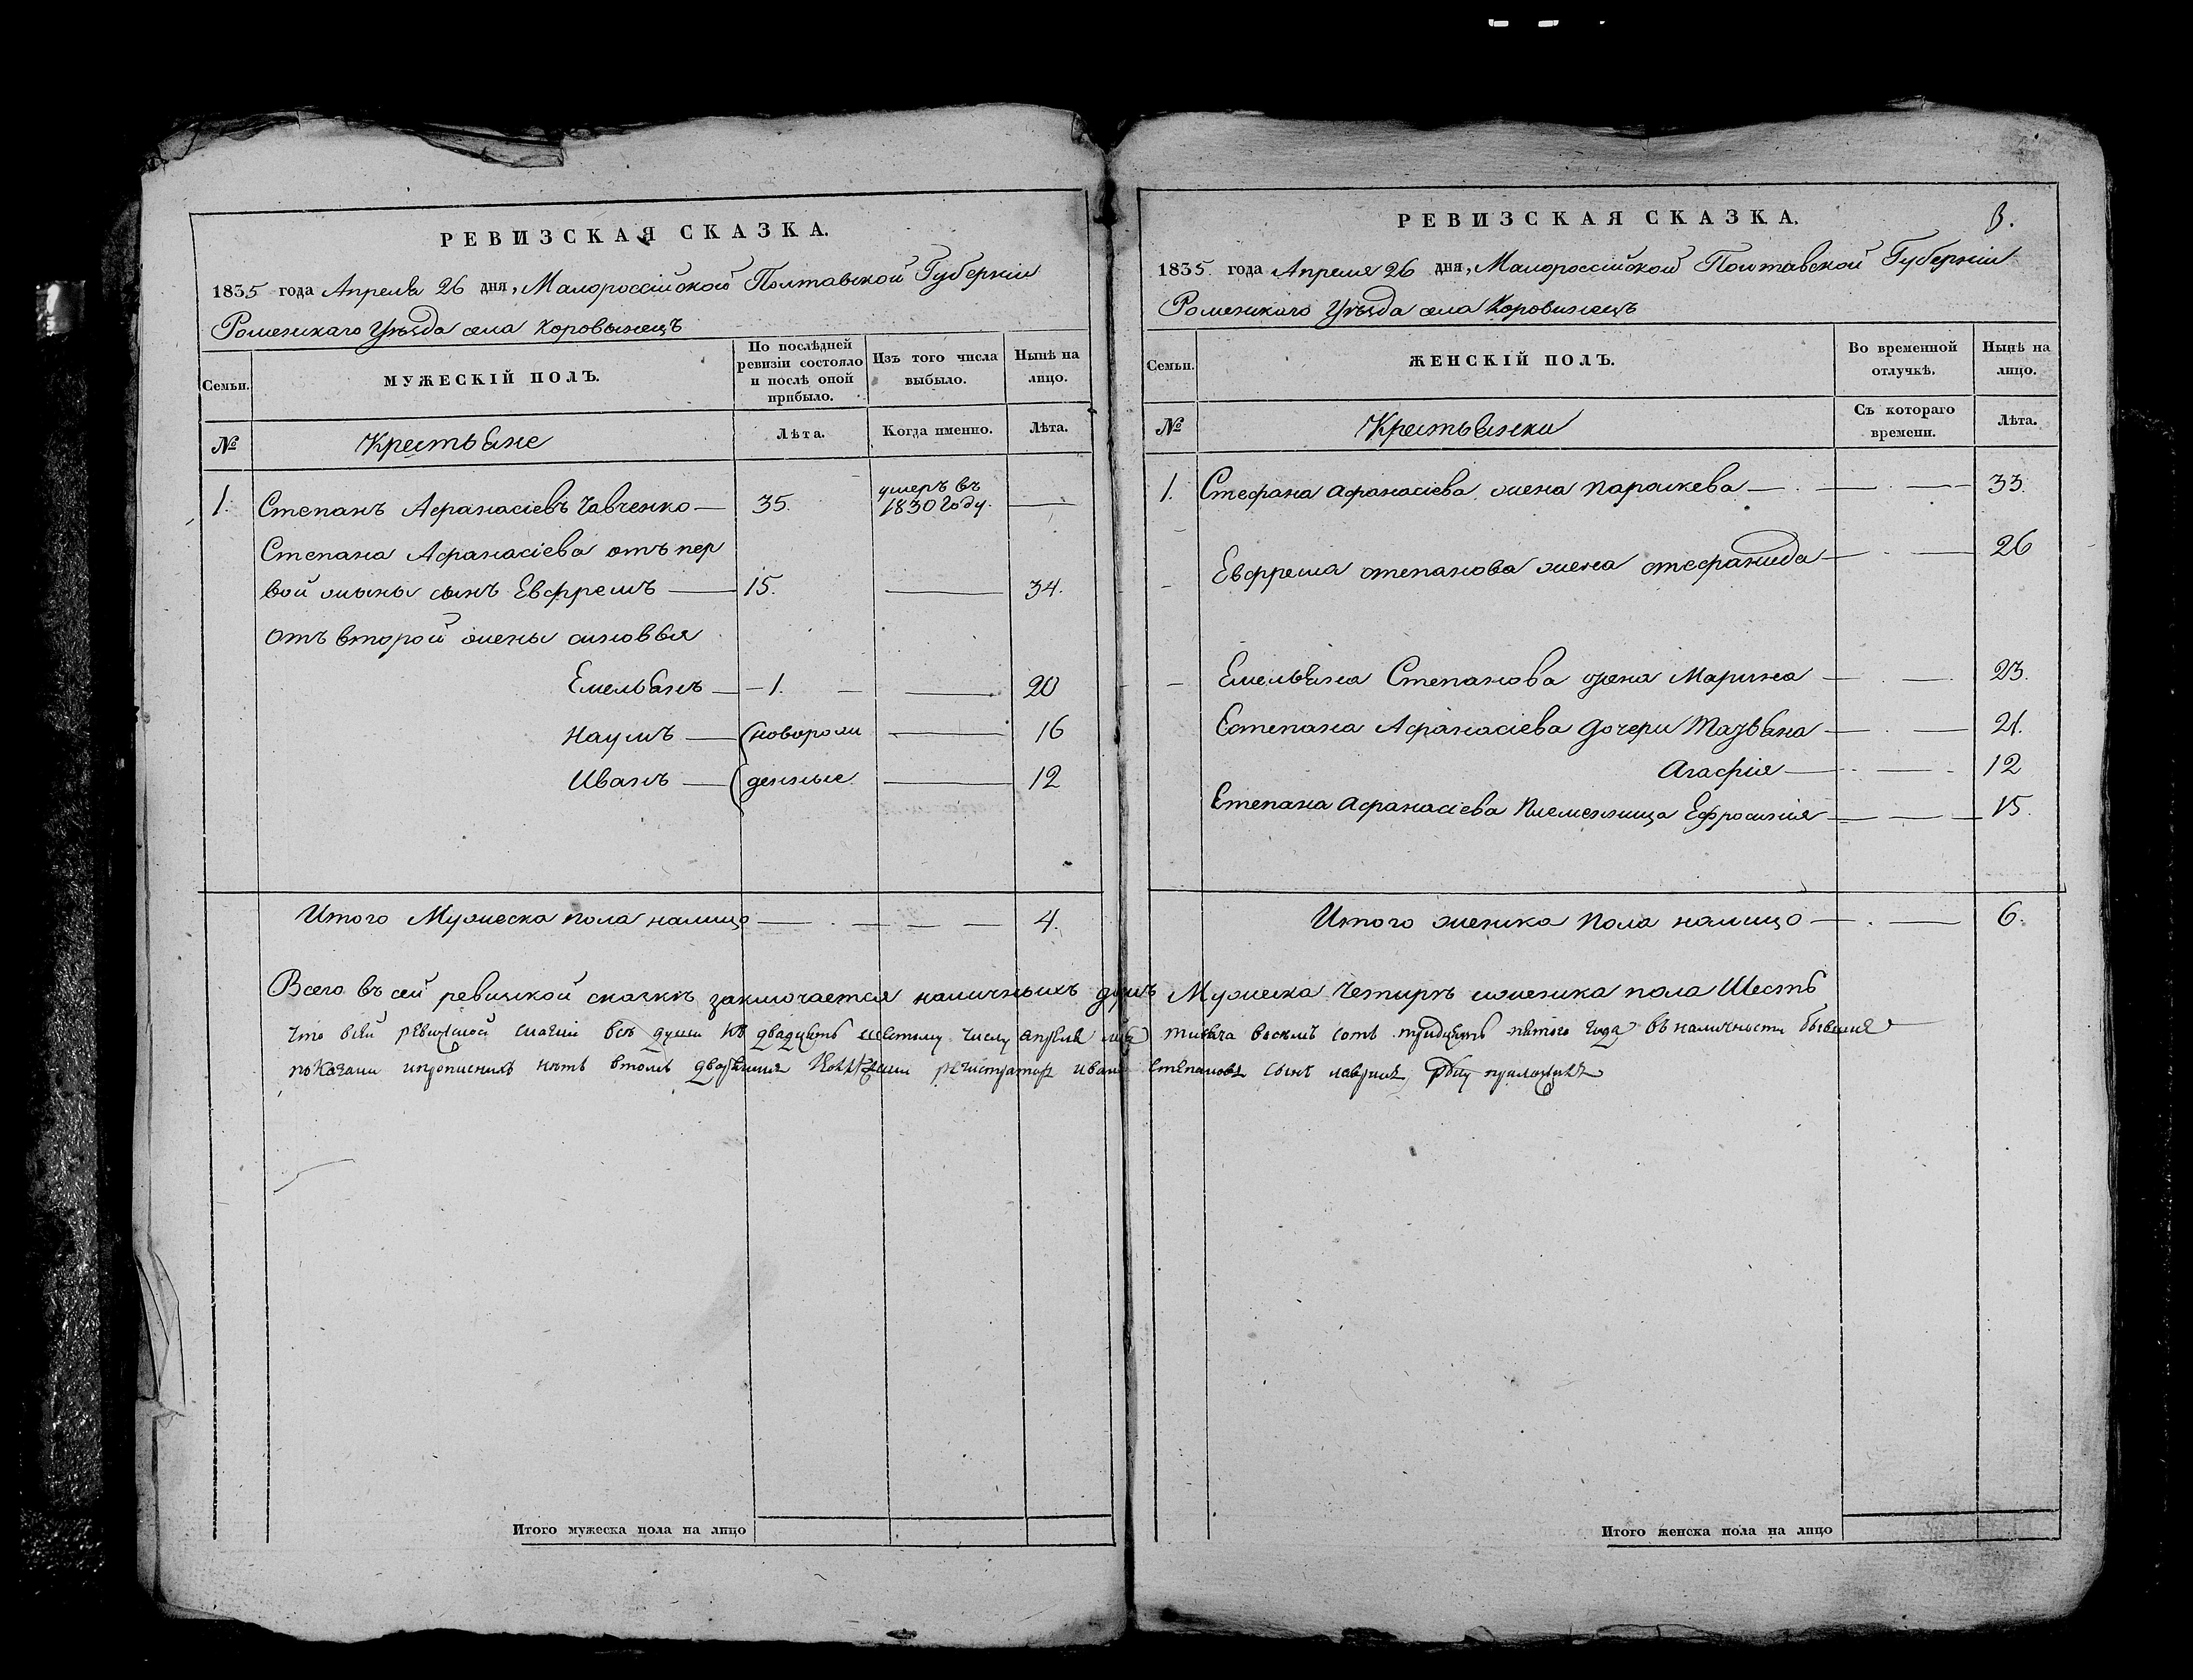 РЕВИЗСКАЯ СКАЗКА.
1835 года Апреля 26 дня, Малороссійской Полтавской Губерніи
Роменскаго Уѣзда села Коровынецъ
Семьи.
МУЖЕСКІЙ ПОЛЪ.
По послѣдней ревизіи состояло и послѣ оной прибыло.
Изъ того числа выбыло.
Нынѣ на лицо.
№
Крестьяне
Лѣта.
Когда именно.
Лѣта.
1. Степанъ Афанасіевъ Чавченко — 35. умеръ въ 1830 году. —
Степана Афанасіева отъ пер
вой жены сынъ Евфремъ — 15. — 34.
отъ второй жены синовья
Емельянъ — 1. — 20
Наумъ — (новорож — 16
Иванъ — (денные — 12
Итого Мужеска пола налицо — 4.
РЕВИЗСКАЯ СКАЗКА.
3.
1835 года Апреля 26 дня, Малороссійской Полтавской Губерніи
Роменскаго Уѣзда села Коровинецъ
Семьи.
ЖЕНСКІЙ ПОЛЪ.
Во временной отлучкѣ.
Нынѣ на лицо.
№
Крестьянки
Съ котораго времени.
Лѣта.
1. Стефана Афанасіева жена Параскева — 33.
Евфрема степанова жена стефанида — 26
Емельяна Степанова жена Марина — 23.
Степана Афанасіева дочери Татьяна — 21.
Агафія — 12
Степана Афанасіева племенница Ефросинія — 15
Итого женска пола налицо — 6.
Всего въ сей ревизской сказкѣ заключается наличныхъ душъ Мужеска четырѣ иженска пола Шесть
что всей ревизской сказки всѣ души къ двадцать шестому числу апреля тисяча восемъ сотъ тридцать пятого года въ наличности бывшия
показани ипрописнихъ нѣтъ втомъ регистраторъ иванъ степановъ сынъ руку приложилъ
Итого мужеска пола на лицо
Итого женска пола на лицо